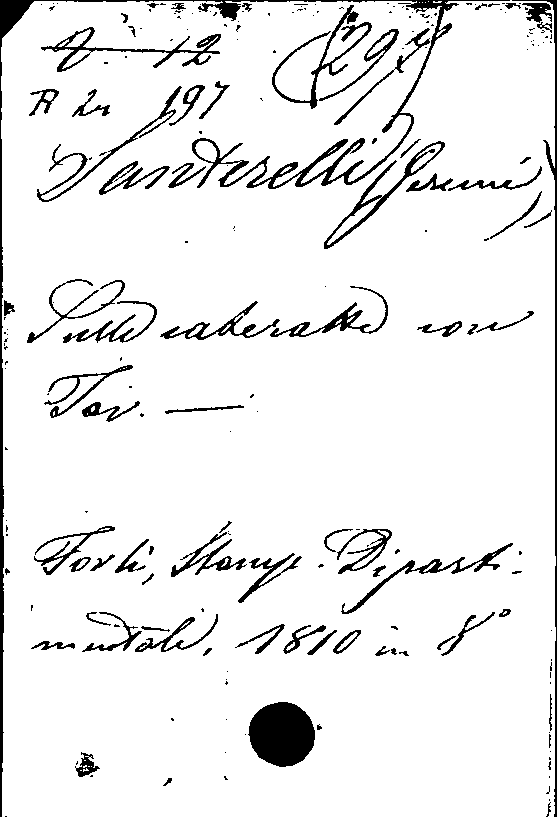 12
197
Santerelli (Geremi)
Sulle cateratte con
Tav. —
Forlì, Stamp. Diparti-
mentale, 1810 in 8°